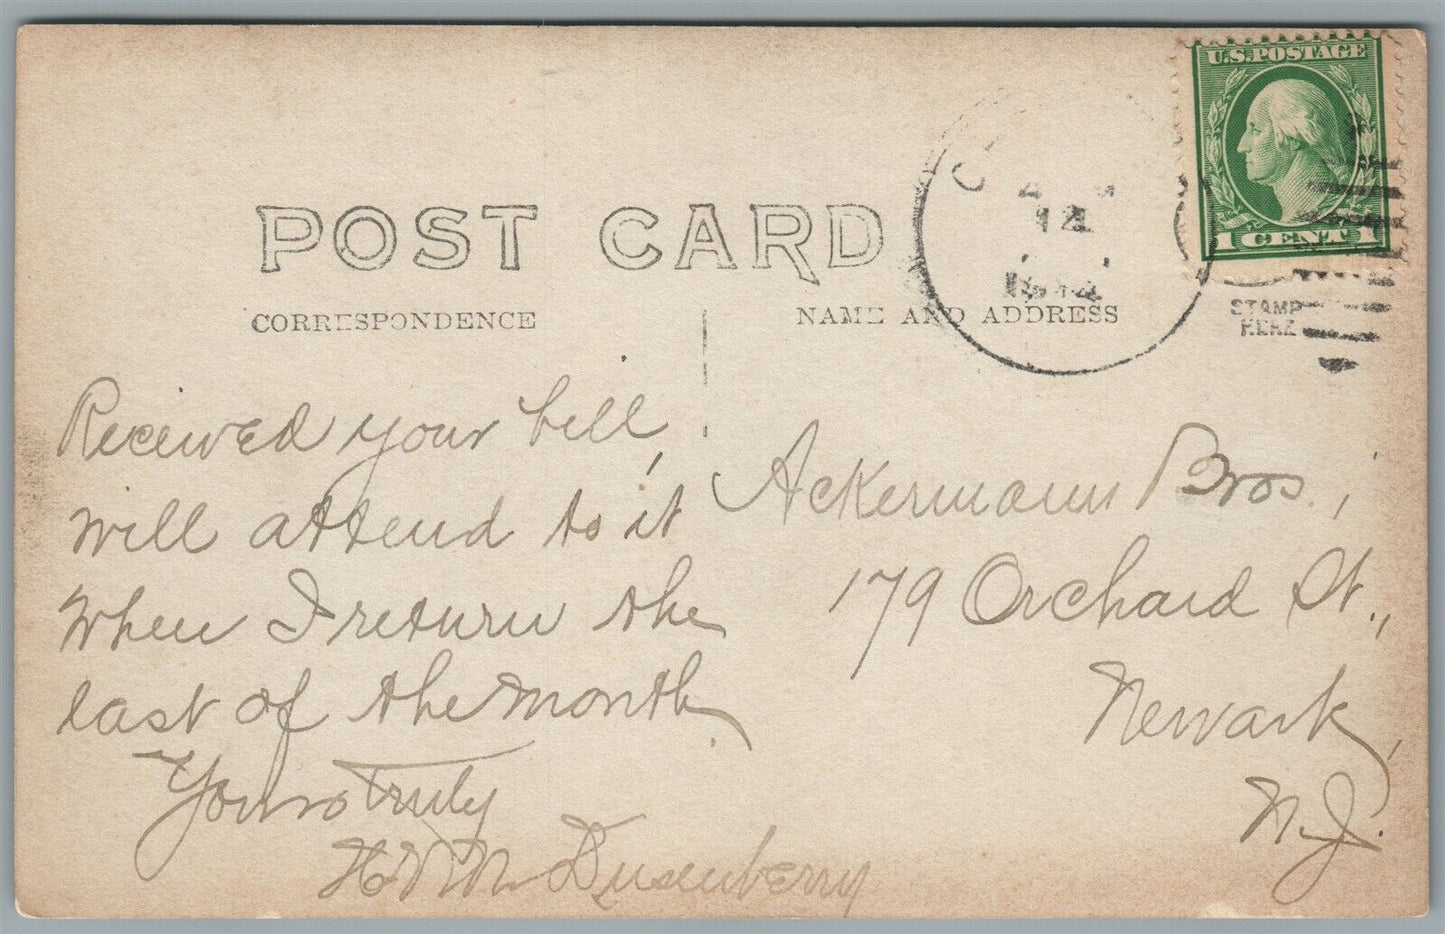 U.S. POSTAGE
1 CENT 1
14
POST CARD
CORRESPONDENCE
NAME AND ADDRESS
STAMP
HERE
Received your bill,
will attend to it
when I return the
last of the month.
Yours Truly
Dusenberry
Ackermann Bros.,
179 Orchard St.,
Newark,
N.J.